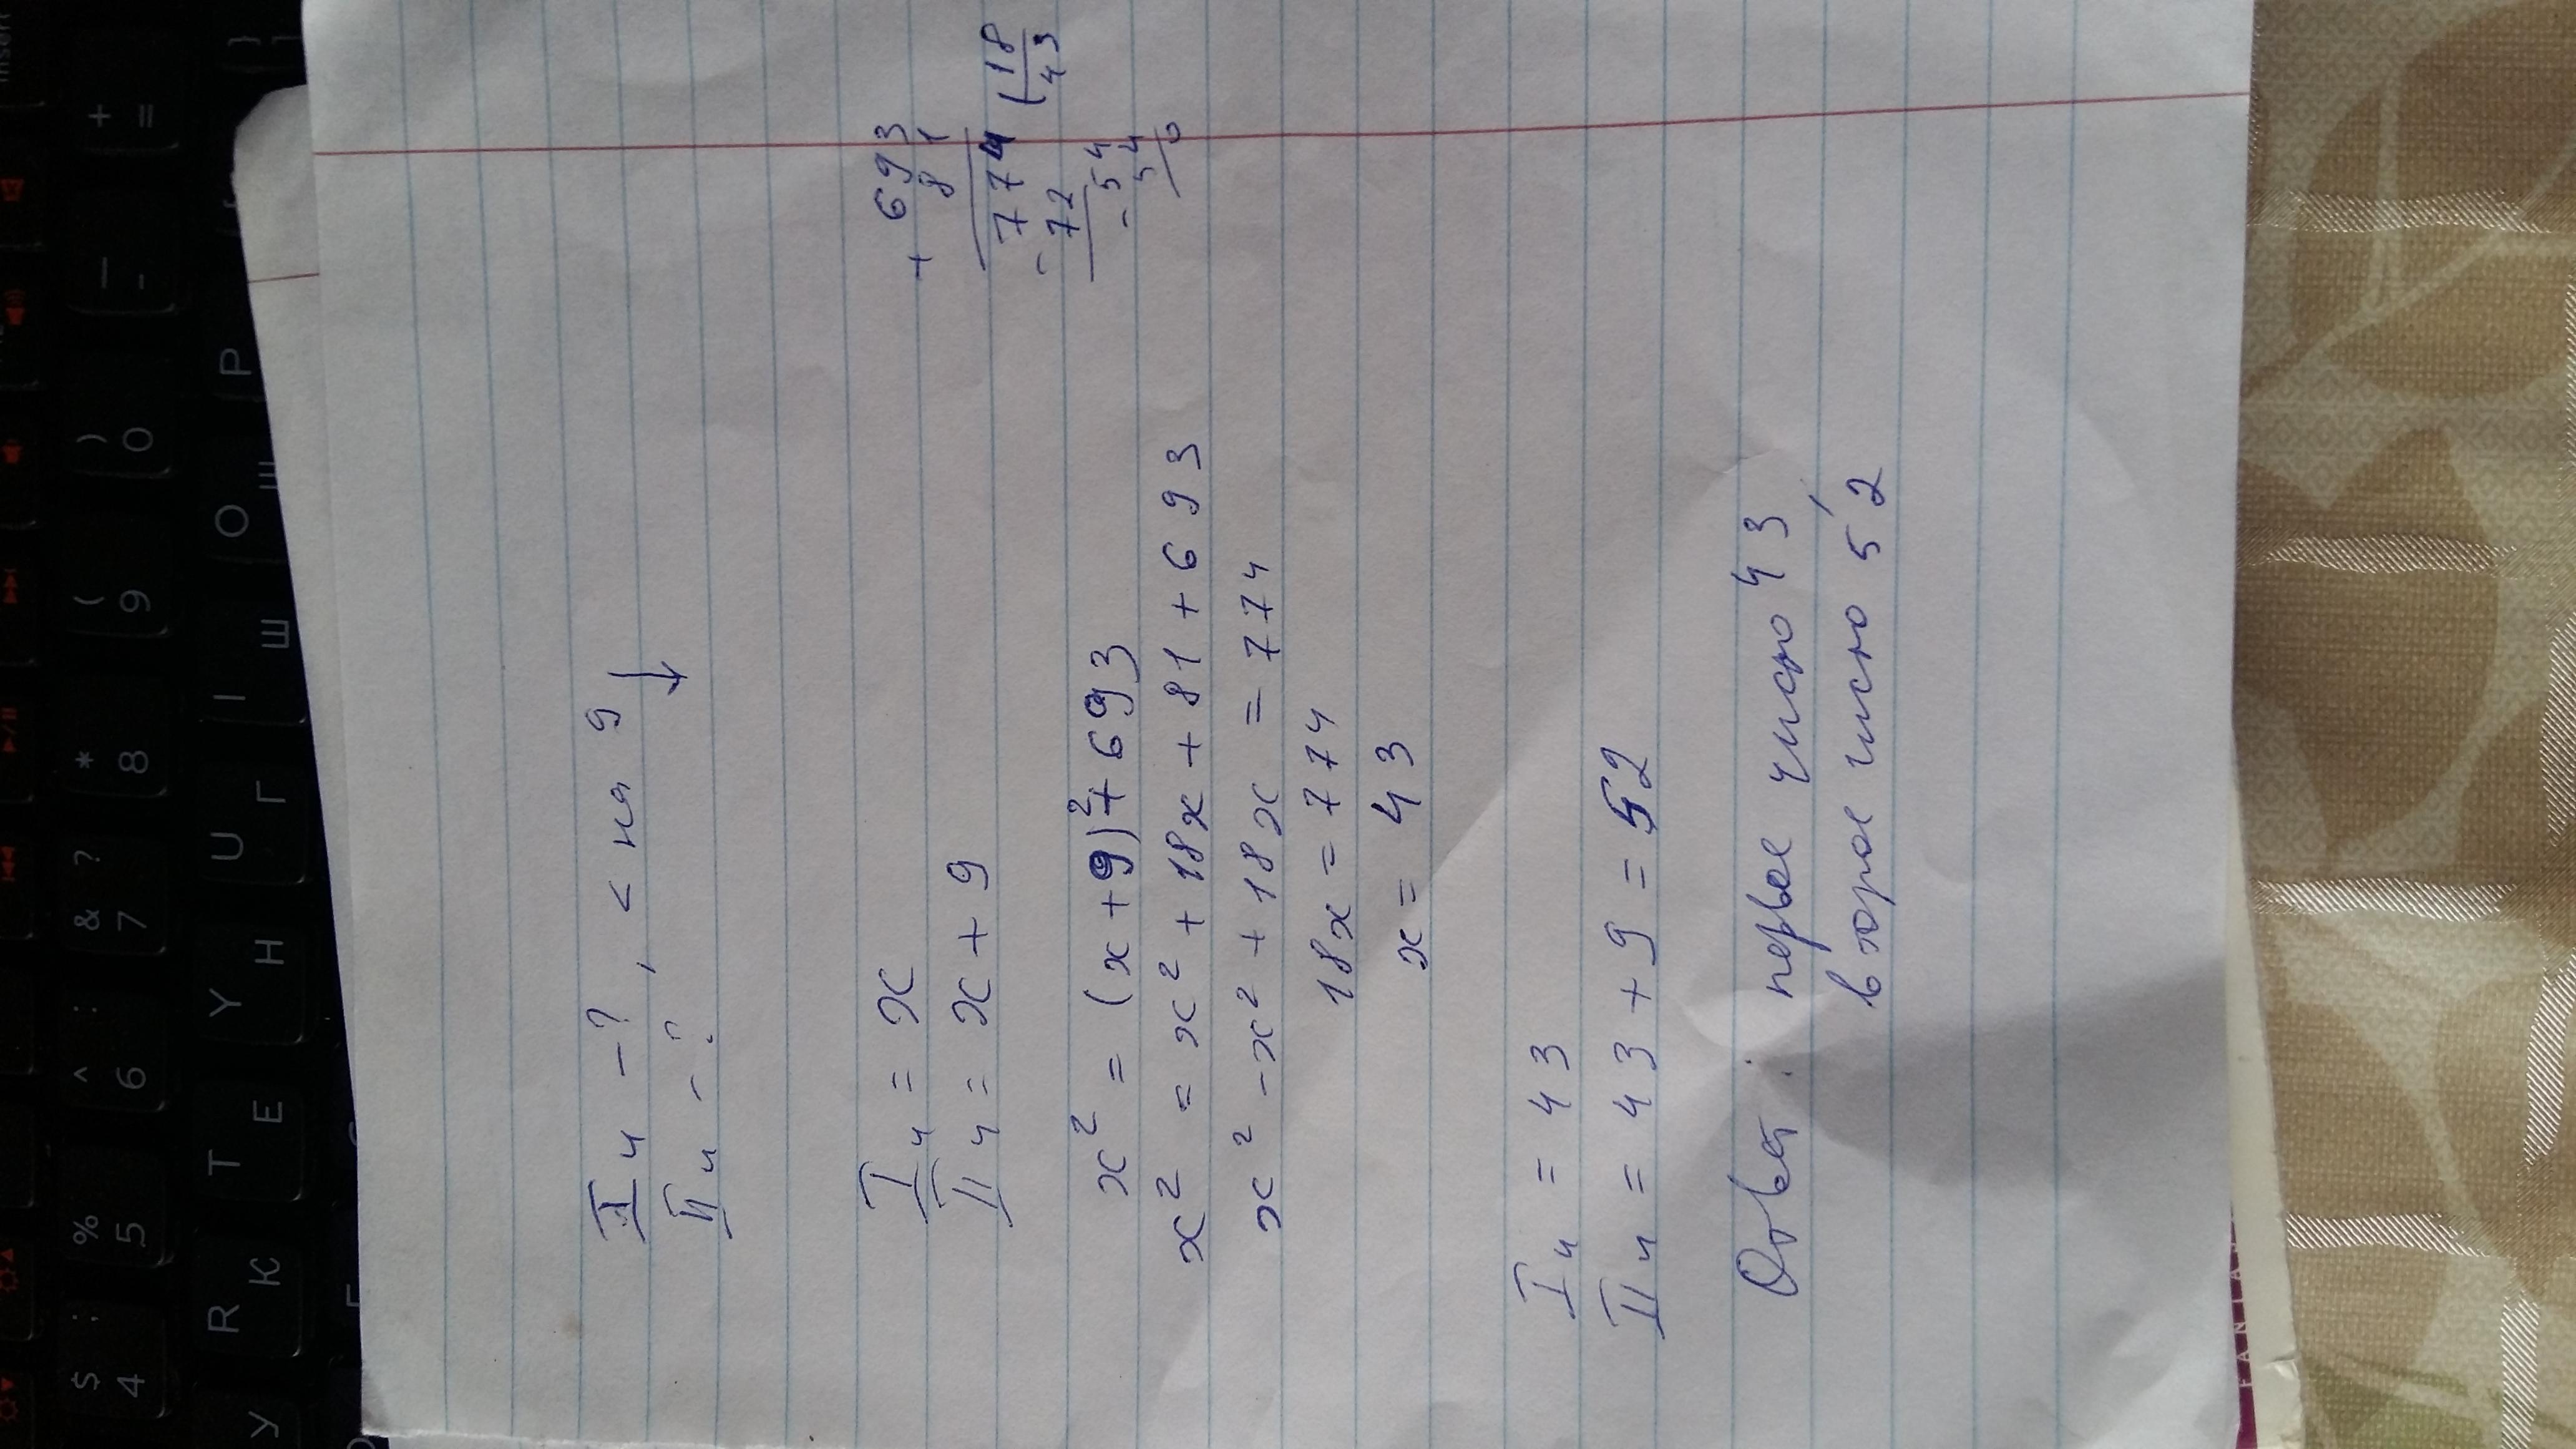 I ч - ?, < на 9
II ч - ?
I ч = x
II ч = x + 9
x² = (x + 9)² + 693
x² = x² + 18x + 81 + 693
x² - x² + 18x = 774
18x = 774
x = 43
I ч = 43
II ч = 43 + 9 = 52
Ответ: первое число 43,
второе число 52
+ 693
81
774 | 18
- 72 43
- 54
54
0
$ 4 ;
% 5 :
^ 6 :
& 7 ?
* 8
( 9
) 0
_ -
+ =
R К
T Е
Y Н
U Г
I Ш
O
P
У